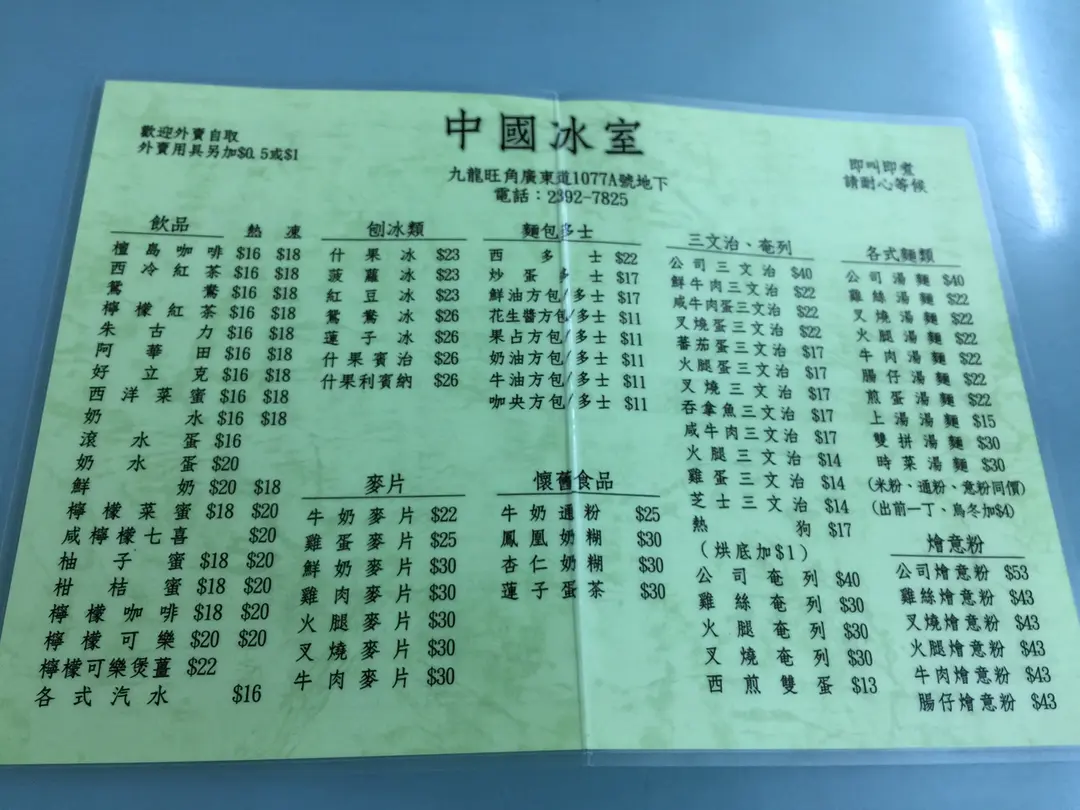 歡迎外賣自取
外賣用具另加$0.5或$1
中國冰室
九龍旺角廣東道1077A號地下
電話：2392-7825
即叫即煮
請耐心等候
飲品 熱 凍
檀島咖啡 $16 $18
西冷紅茶 $16 $18
鴛鴦 $16 $18
檸檬紅茶 $16 $18
朱古力 $16 $18
阿華田 $16 $18
好立克 $16 $18
西洋菜蜜 $16 $18
奶水 $16 $18
滾水蛋 $16
奶水蛋 $20
鮮奶 $20 $18
檸檬菜蜜 $18 $20
咸檸檬七喜 $20
柚子蜜 $18 $20
柑桔蜜 $18 $20
檸檬咖啡 $18 $20
檸檬可樂 $20 $20
檸檬可樂煲薑 $22
各式汽水 $16
刨冰類
什果冰 $23
菠蘿冰 $23
紅豆冰 $23
鴛鴦冰 $26
蓮子冰 $26
什果賓治 $26
什果利賓納 $26
麥片
牛奶麥片 $22
雞蛋麥片 $25
鮮奶麥片 $30
雞肉麥片 $30
火腿麥片 $30
叉燒麥片 $30
牛肉麥片 $30
麵包多士
西多士 $22
炒蛋多士 $17
鮮油方包/多士 $17
花生醬方包/多士 $11
果占方包/多士 $11
奶油方包/多士 $11
牛油方包/多士 $11
咖央方包/多士 $11
懷舊食品
牛奶通粉 $25
鳳凰奶糊 $30
杏仁奶糊 $30
蓮子蛋茶 $30
三文治、奄列
公司三文治 $40
鮮牛肉三文治 $22
咸牛肉蛋三文治 $22
叉燒蛋三文治 $22
蕃茄蛋三文治 $17
火腿蛋三文治 $17
叉燒三文治 $17
吞拿魚三文治 $17
咸牛肉三文治 $17
火腿三文治 $14
雞蛋三文治 $14
芝士三文治 $14
熱狗 $17
(烘底加$1)
公司奄列 $40
雞絲奄列 $30
火腿奄列 $30
叉燒奄列 $30
西煎雙蛋 $13
各式麵類
公司湯麵 $40
雞絲湯麵 $22
叉燒湯麵 $22
火腿湯麵 $22
牛肉湯麵 $22
腸仔湯麵 $22
煎蛋湯麵 $22
上湯湯麵 $15
雙拼湯麵 $30
時菜湯麵 $30
(米粉、通粉、意粉同價)
(出前一丁、烏冬加$4)
燴意粉
公司燴意粉 $53
雞絲燴意粉 $43
叉燒燴意粉 $43
火腿燴意粉 $43
牛肉燴意粉 $43
腸仔燴意粉 $43